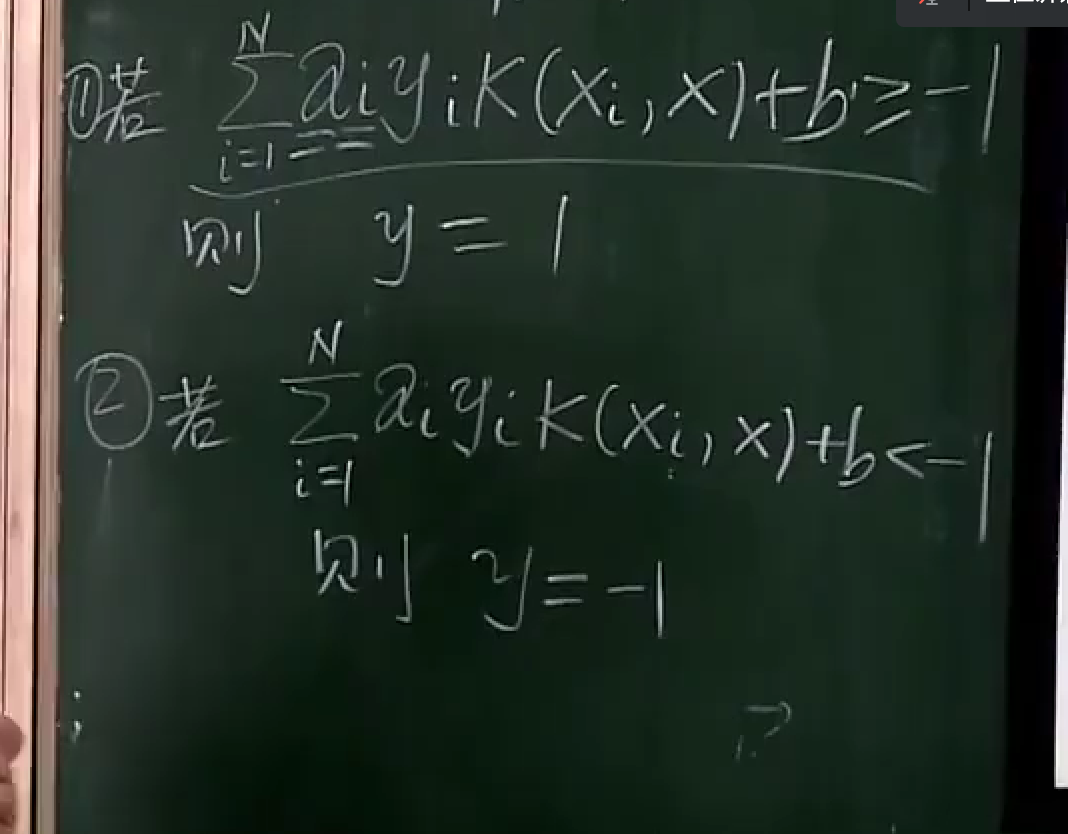 ①若 $\sum_{i=1}^{N} a_i y_i K(x_i, x) + b \geq -1$
则 y = 1
②若 $\sum_{i=1}^{N} a_i y_i K(x_i, x) + b < -1$
则 y = -1